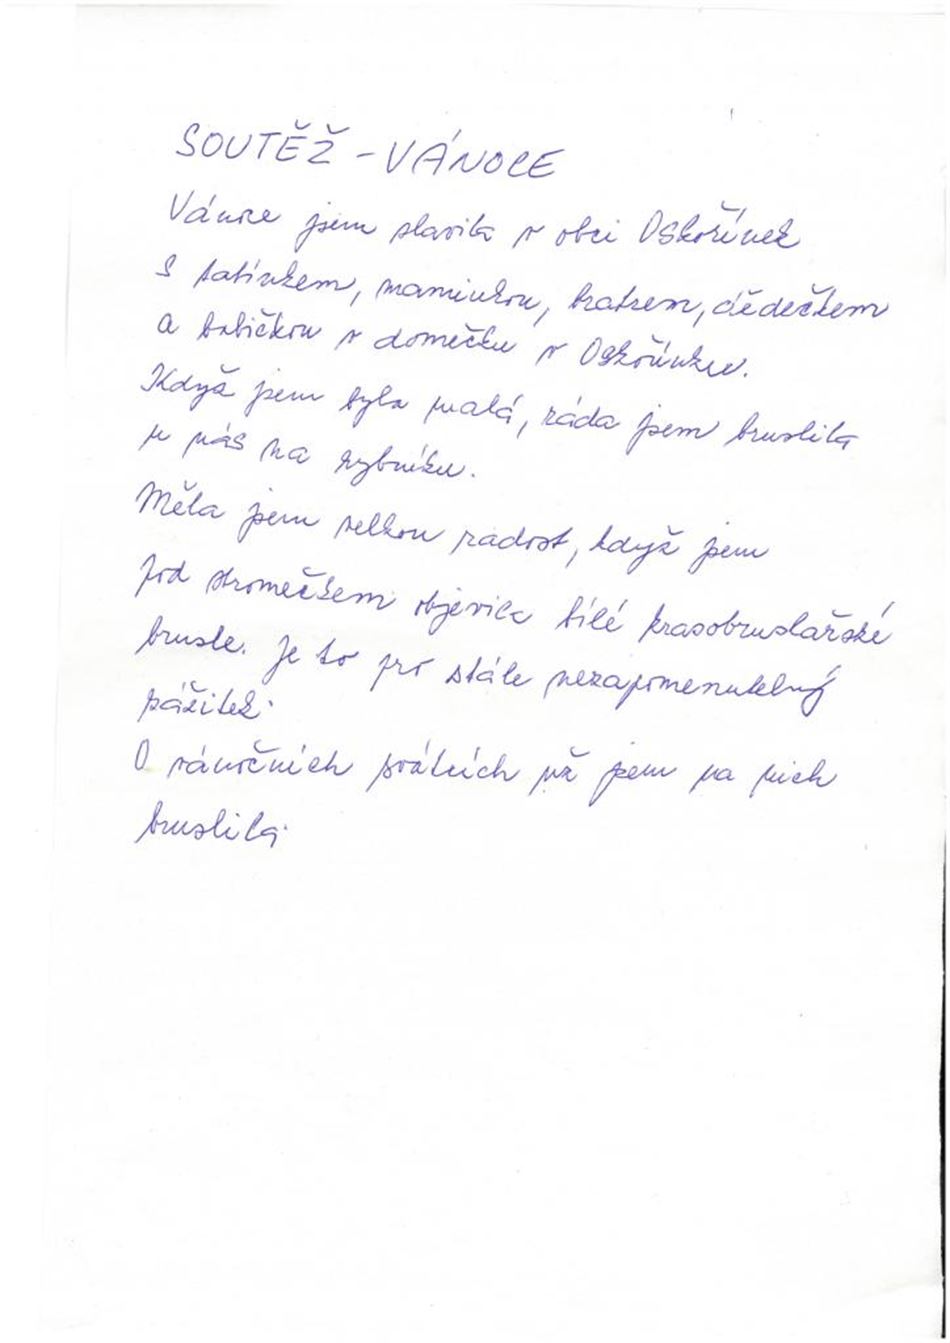 SOUTĚŽ - VÁNOCE
Vánoce jsem slavila v obci Oskořínek
s tatínkem, maminkou, bratrem, dědečkem
a babičkou v domečku v Oskořínku.
Když jsem byla malá, ráda jsem bruslila
u nás na rybníku.
Měla jsem velkou radost, když jsem
pod stromečkem objevila bílé krasobruslařské
brusle. Je to pro stále nezapomenutelný
zážitek.
O vánočních svátcích už jsem na nich
bruslila.